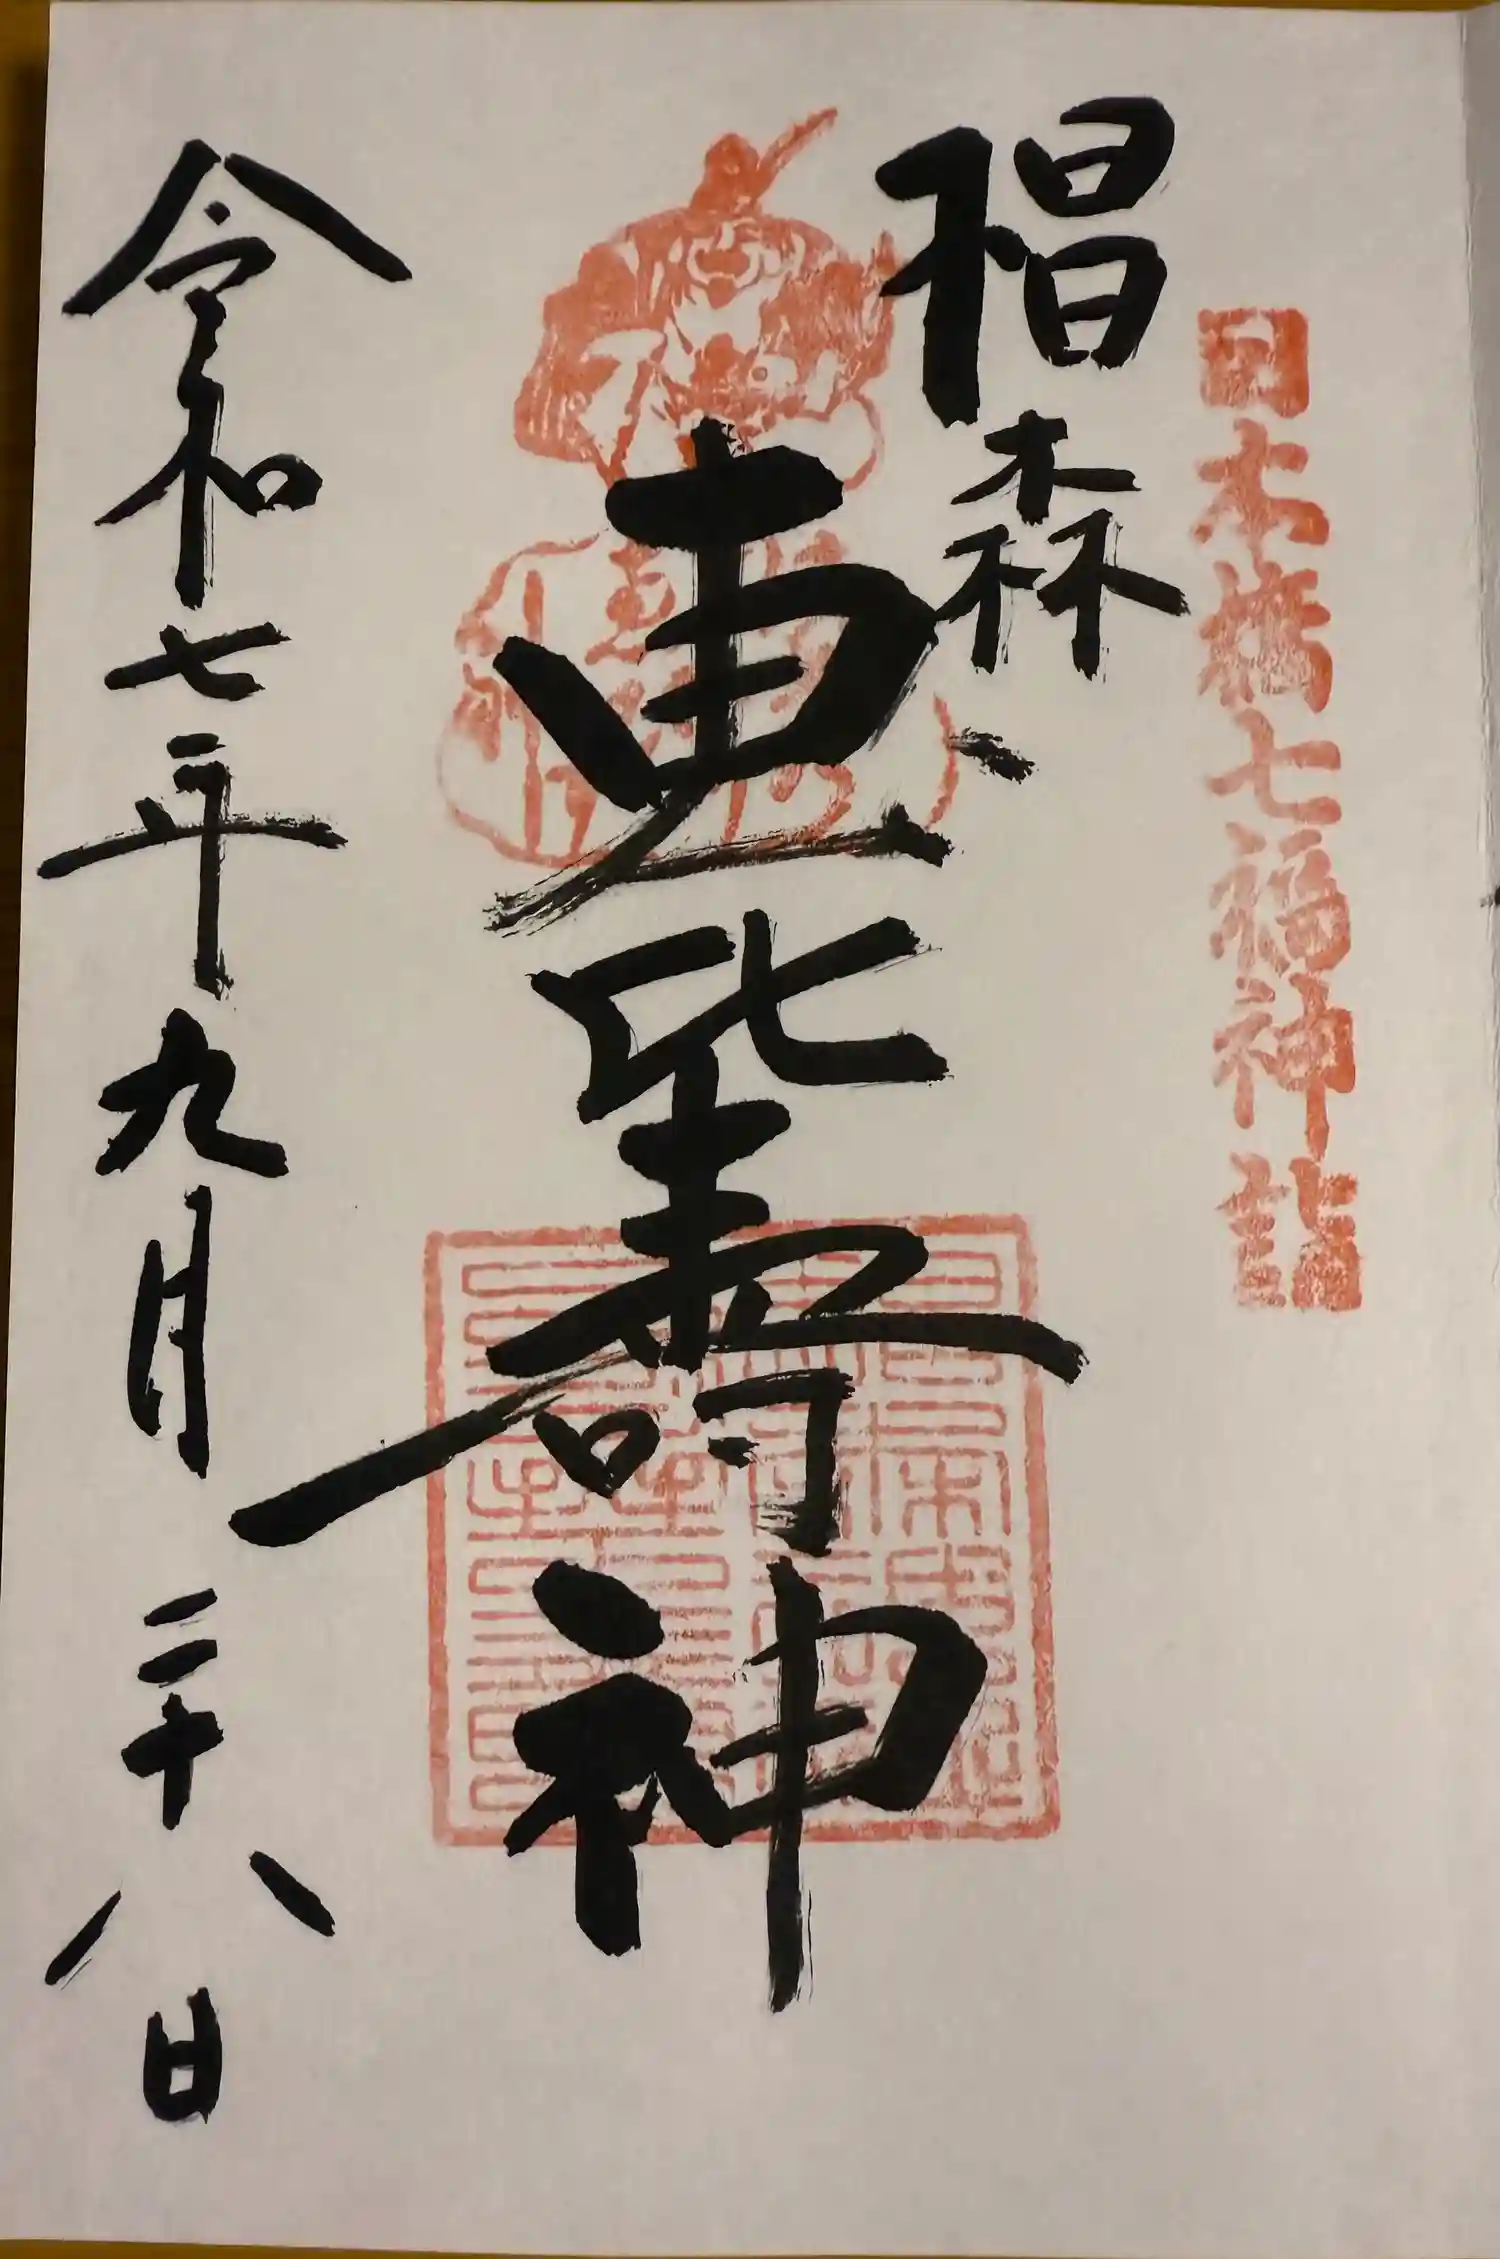 日本橋七福神詣
椙森
恵比壽神
令和七年九月二十八日